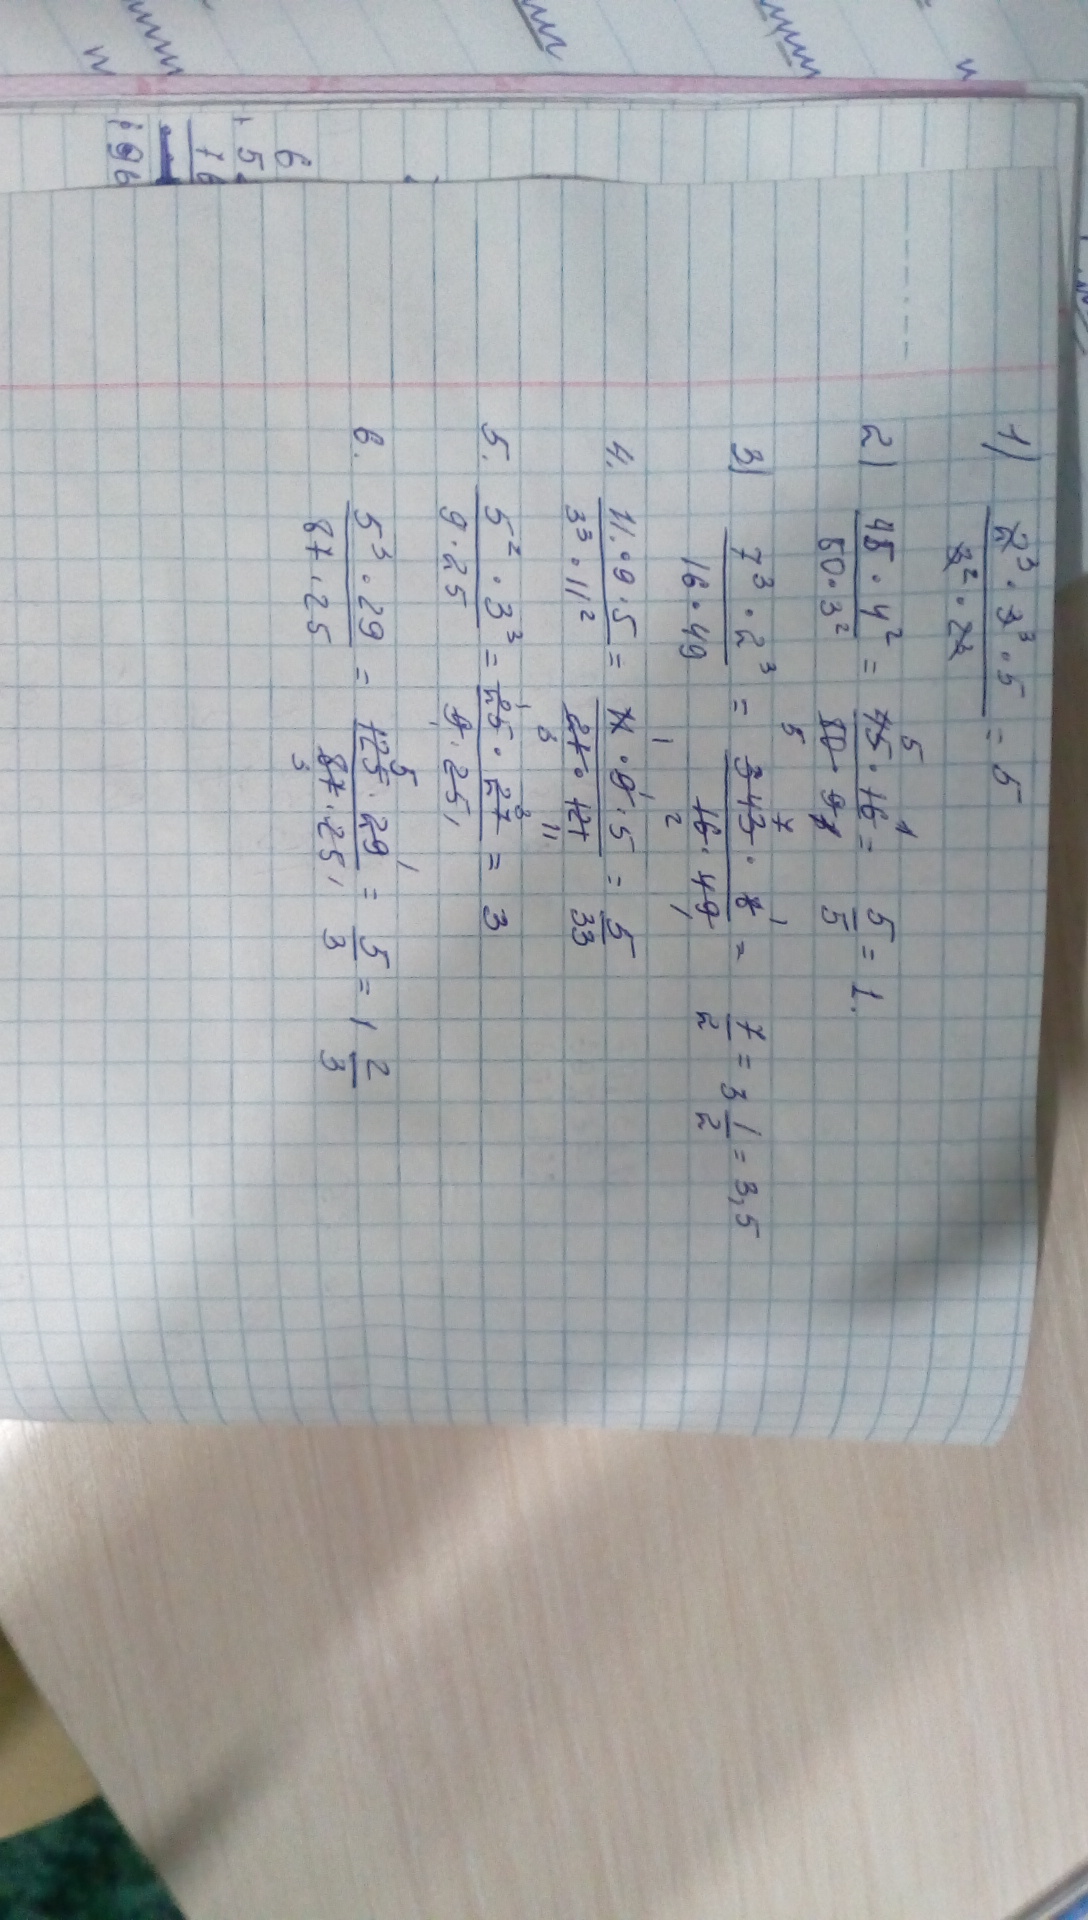 1) (2³ · 3³ · 5) / (3² · 2³) = 5
2) (45 · 4²) / (80 · 3²) = (45 · 16) / (80 · 9) = 5/5 = 1.
3) (7³ · 2³) / (16 · 49) = (343 · 8) / (16 · 49) = 7/2 = 3 1/2 = 3,5
4. (11 · 9 · 5) / (3³ · 11²) = (11 · 9 · 5) / (27 · 121) = 5/33
5. (5² · 3³) / (9 · 25) = (25 · 27) / (9 · 25) = 3
6. (5³ · 29) / (87 · 25) = (125 · 29) / (87 · 25) = 5/3 = 1 2/3